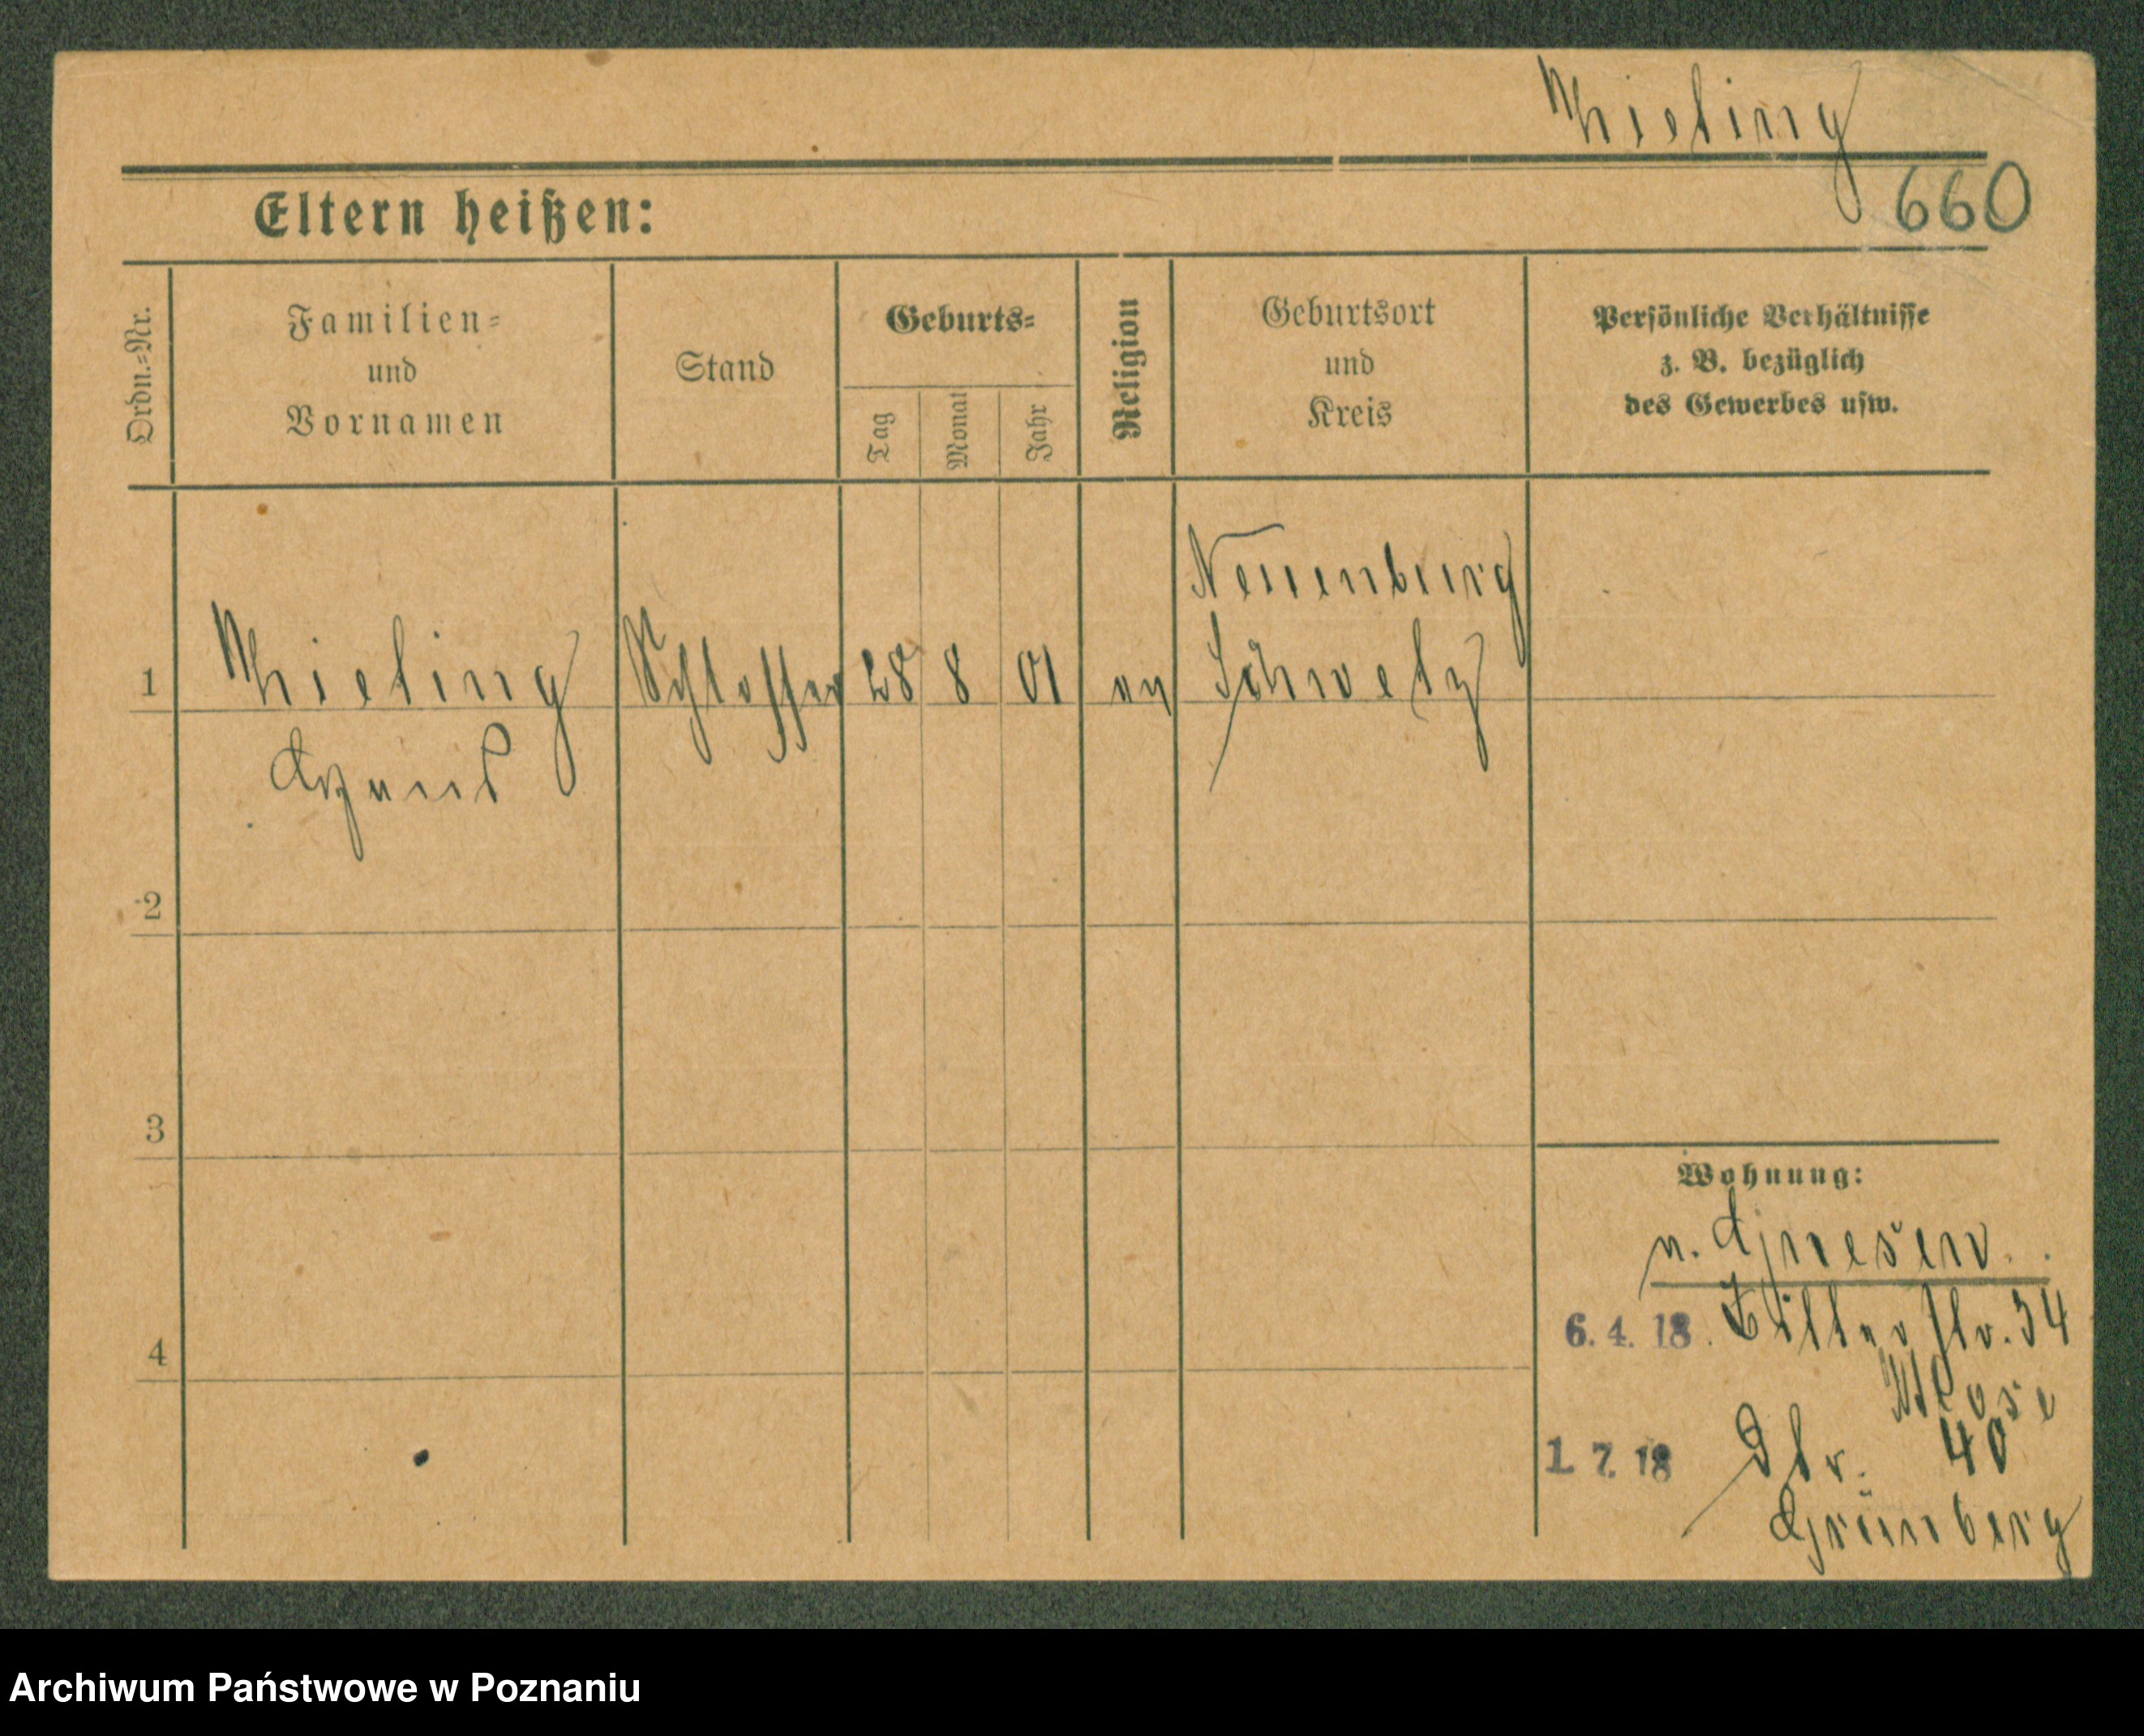 Thieling
660
Eltern heißen:
Ordn.=Nr.
Familien=
und
Vornamen
Stand
Geburts=
Tag
Monat
Jahr
Religion
Geburtsort
und
Kreis
Persönliche Verhältnisse
z. B. bezüglich
des Gewerbes usw.
Neuenburg
1 Schlosser 28 8 01 ev Schwetz
2
3
4
Wohnung:
v. Gnesen.
6. 4. 18. str. 34
Klose
1. 7. 18 Str. 40
Grünberg
Archiwum Państwowe w Poznaniu